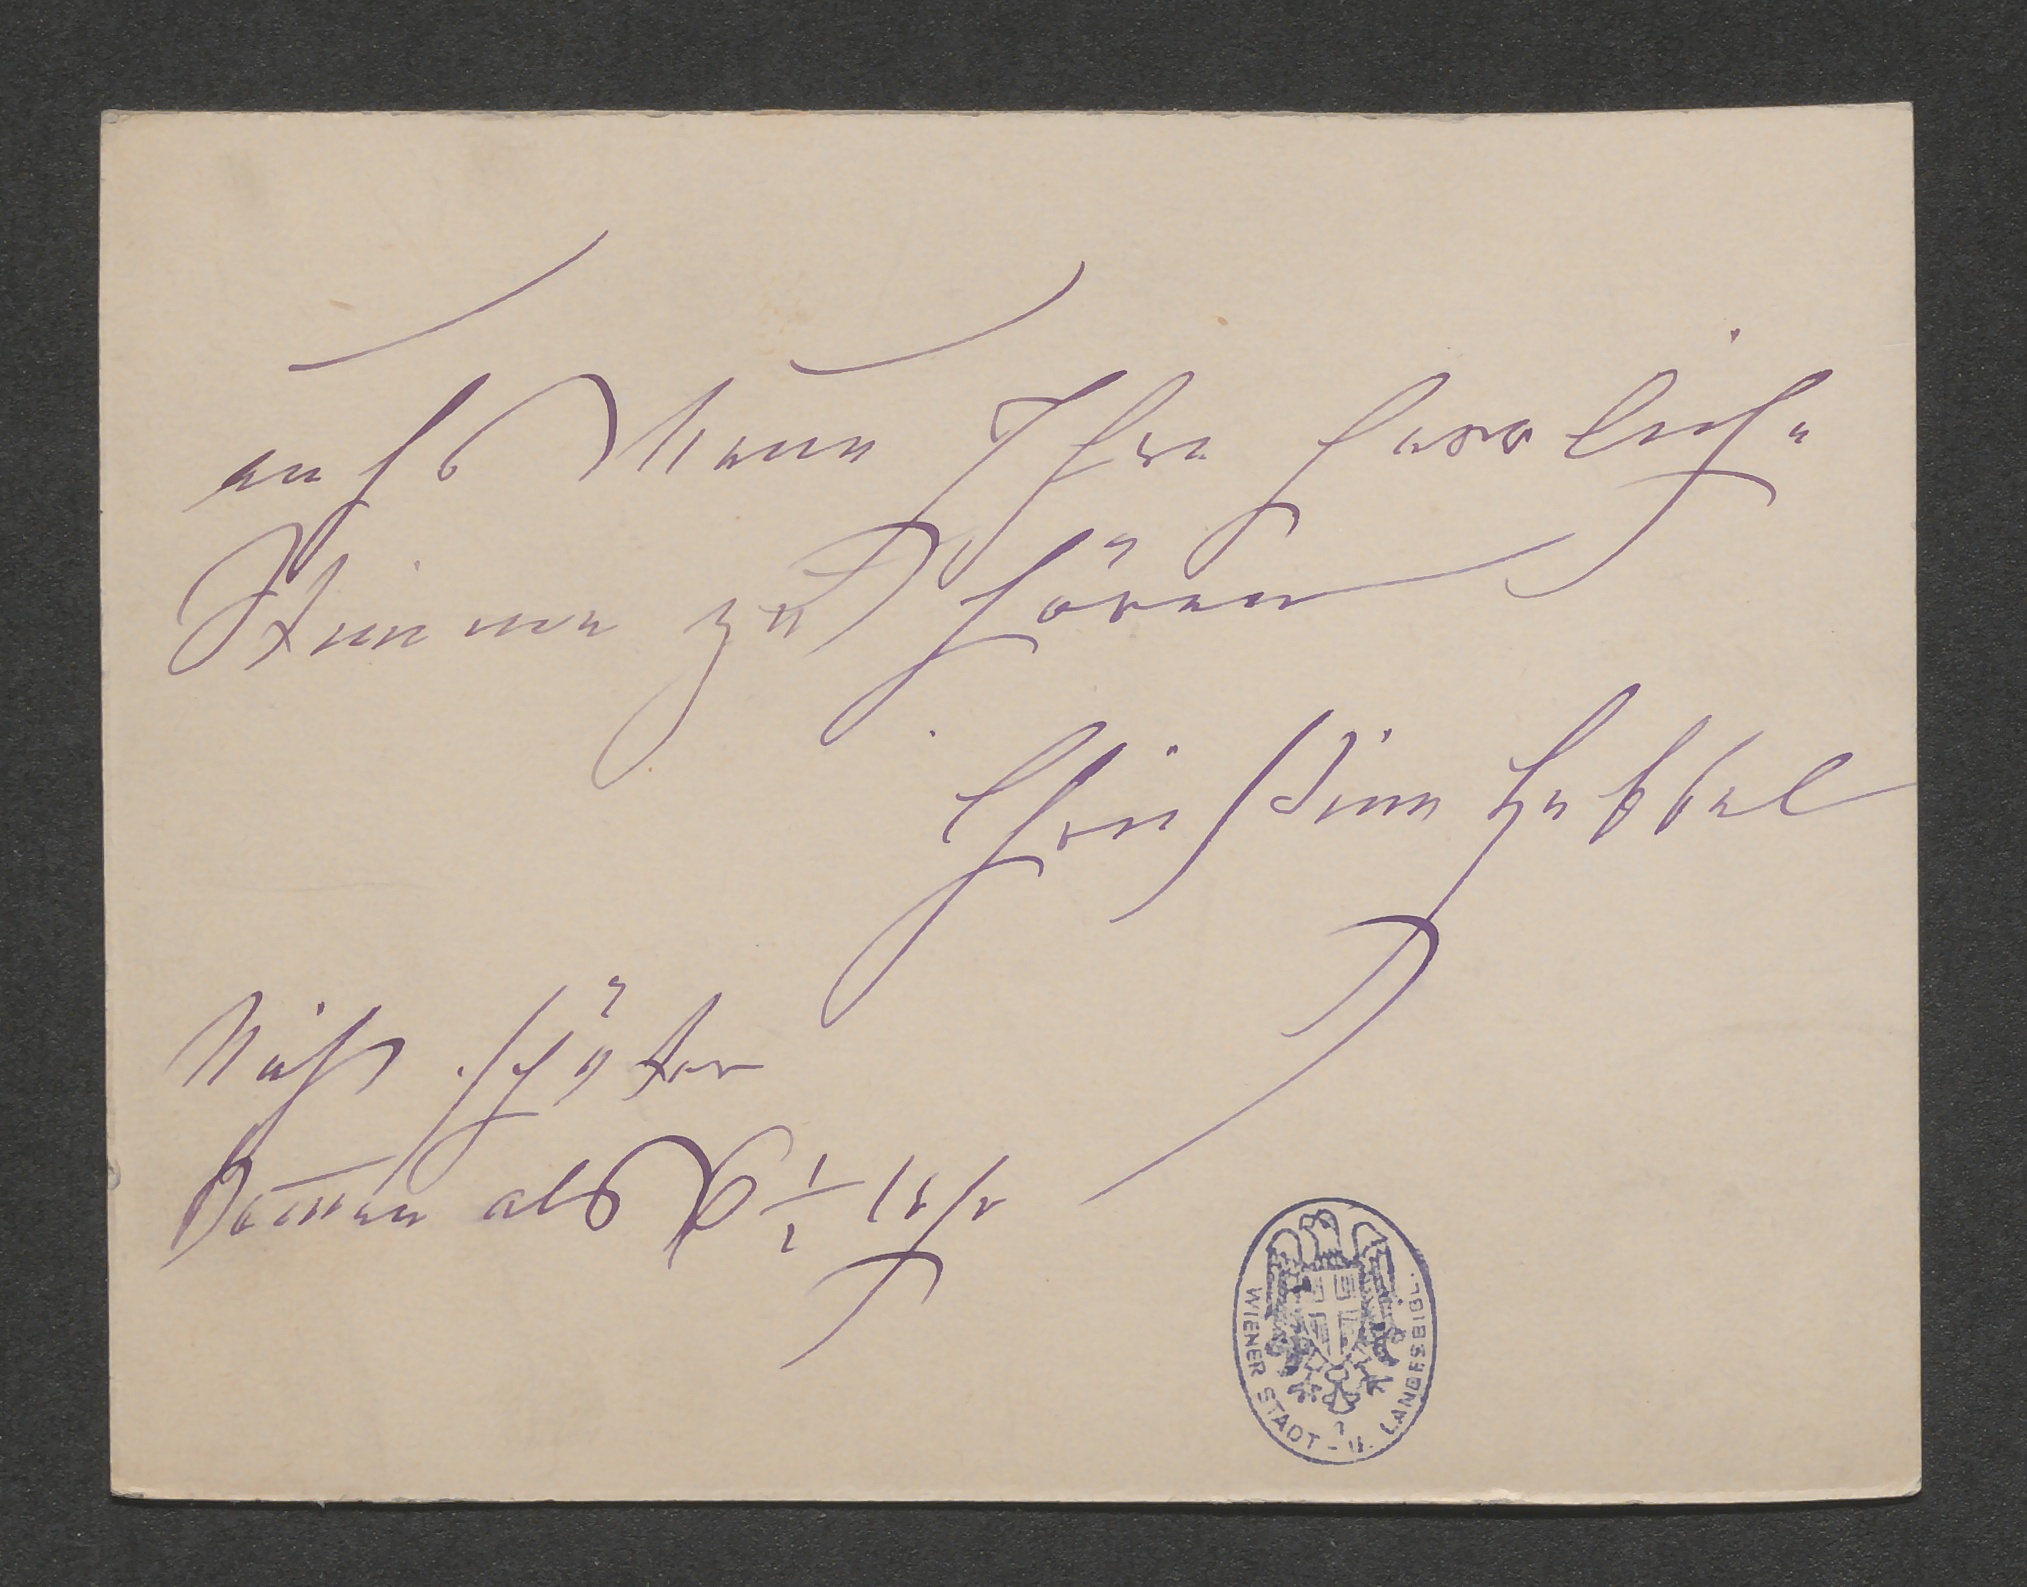 auch kann Ihre herrliche
Stimme zu hören
Christine Hebbel
Nicht später
kommen als 6 1/2 Uhr
WIENER STADT - U. LANDESBIBL.